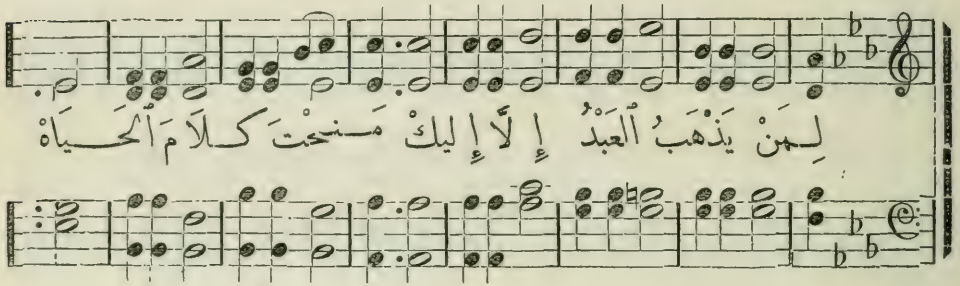 لِمَنْ يَذْهَبُ ٱلْعَبْدُ إِلَّا إِلَيكْ مَنَحْتَ كَلَامَ ٱلْحَيَاةْ